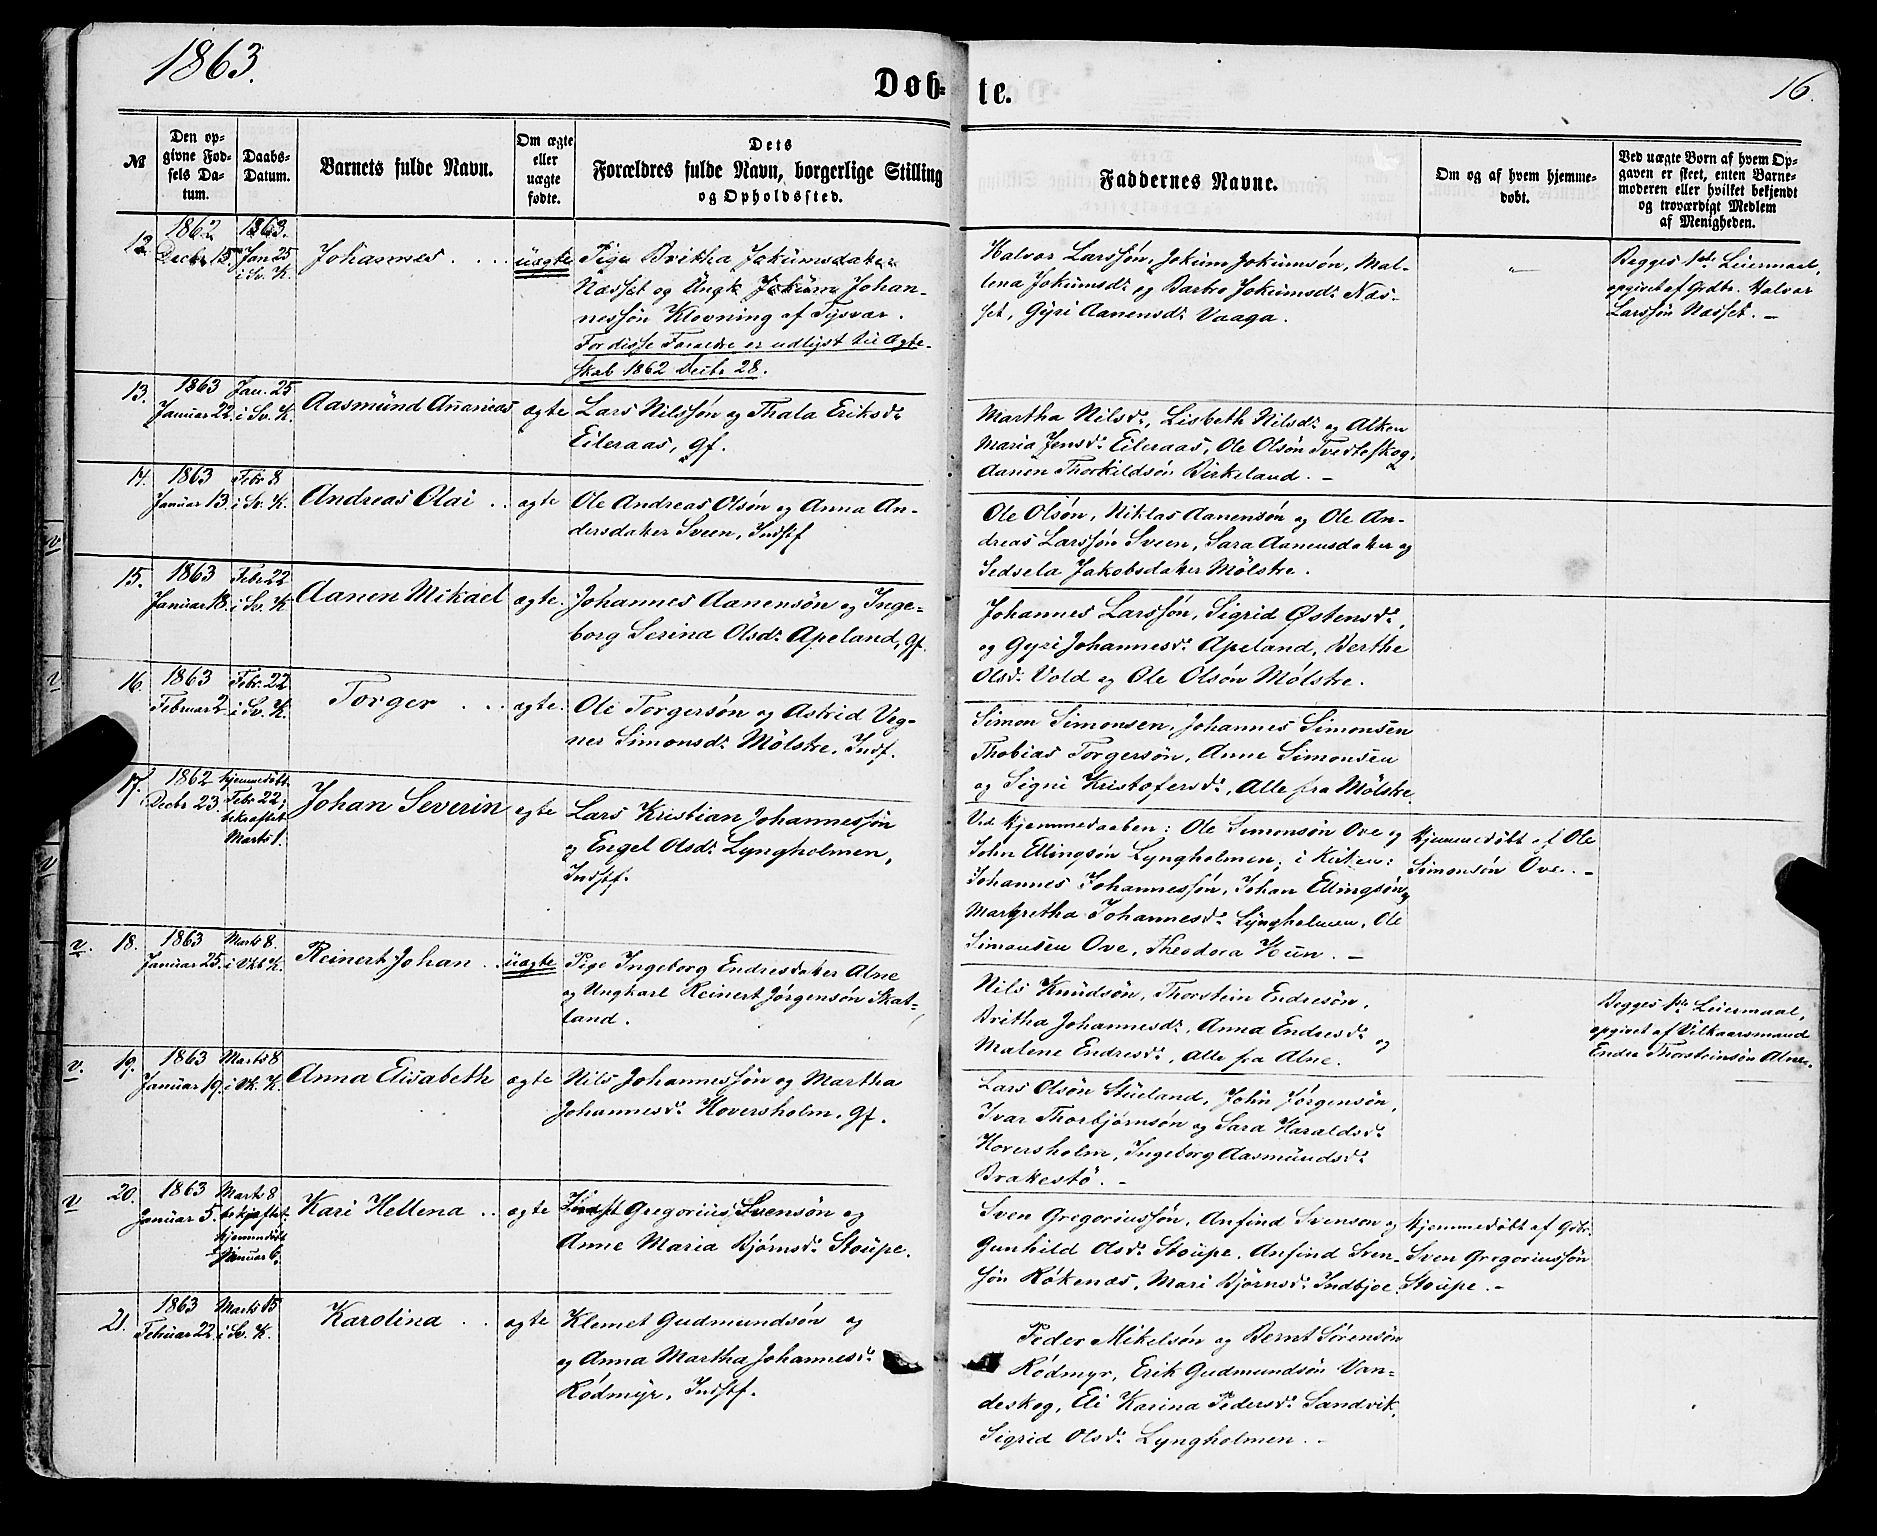 1863.
Døb-
te.
16.
№
Den op-
givne Fød-
sels Da-
tum.
Daabs-
Datum.
Barnets fulde Navn.
Om ægte
eller
uægte
fødte.
Dets
Forældres fulde Navn, borgerlige Stilling
og Opholdssted.
Faddernes Navne.
Om og af hvem hjemme-
døbt.
Ved uægte Børn af hvem Op-
gaven er skeet, enten Barne-
moderen eller hvilket bekjendt
og troværdigt Medlem
af Menigheden.
12.
1862
Decbr 15.
1863.
Jan 25
i Sv. K.
Johannes
uægte
Pige Britha Jokumsdatter
Næsset og Ungk Jokum Johan-
nessøn Klovning af Tysvær.
For disse Forældre er udlyst til Ægte-
skab 1862 Decbr 28.
Halvor Larssøn, Jokum Jokumsøn, Mal-
lena Jokumsdr og Barbro Jokumsdr Næs-
set, Gyri Aanensdr Vaaga.
"
Begges 1ste Leiermaal,
opgivet af Grdbr. Halvor
Larssøn Næsset. -
13.
1863
Januar 22
Jan. 25
i Sv. K.
Aasmund Ananias
ægte
Lars Nilssøn og Thala Eriksdr
Eileraas, gf.
Martha Nilsdr, Lisbeth Nilsdr og Alken
Maria Jensdr Eileraas, Ole Olsøn Tvedteskog,
Aanen Thorkildsøn Birkeland. -
14.
1863
Januar 13
Febr 8
i Sv. K.
Andreas Olai
ægte
Ole Andreas Olsøn og Anna An-
dersdatter Sveen, Indstf
Ole Olsøn, Niklas Aanensøn og Ole An-
dreas Larssøn Sveen, Sara Aanensdatter og
Sedsela Jakobsdatter Mølstre.
v
15.
1863
Januar 18.
Febr 22
i Sv. K
Aanen Mikael
ægte.
Johannes Aanensøn og Inge-
borg Serina Olsdr Apeland, gf.
Johannes Larssøn, Sigrid Østensdr,
og Gyri Johannesdr Apeland, Berthe
Olsdr Vold og Ole Olsøn Mølstre.
v
16.
1863
Februar 2
Febr. 22
i Sv. K.
Torger
ægte.
Ole Torgersøn og Astrid Veg-
ner Simonsdr Mølstre, Indf.
Simon Simonsen, Johannes Simonsen
Thobias Torgersøn, Anne Simonsen
og Signi Kristofersdr, Alle fra Mølstre.
17.
1862
Decbr 23.
hjemmedøbt
Febr 22,
bekræftet
Marts 1.
Johan Severin
ægte
Lars Kristian Johannessøn
og Engel Olsdr Lyngholmen,
Indstf.
Ved Hjemmedaaben: Ole Simonsøn Ove og
John Ellingsøn Lyngholmen; i Kirken:
Johannes Johannessøn, Johan Ellingsøn og
Margretha Johannesdr Lyngholmen, Ole
Simonsen Ove, Theodora Hun. -
Hjemmedøbt af Ole
Simonsøn Ove. -
v
v.
18.
1863
Januar 25.
Marts 8.
i Vkb K.
Reinert Johan
uægte
Pige Ingeborg Endresdatter Alne
og Ungkarl Reinert Jørgensøn Skat-
land.
Nils Knudsøn, Thorstein Endresøn,
Britha Johannesdr, Anna Endresdr og
Malene Endresdr, Alle fra Alne.
Begges 1ste Leiermaal,
opgivet af Vilkaarsmand
Endre Thorsteinsøn Alne.
v.
19.
1863
Januar 19.
Marts 8
i Vk. K.
Anna Elisabeth
ægte
Nils Johannessøn og Martha
Johannesdr Hoversholm, gf.
Lars Olsøn Stueland, John Jørgensøn,
Ivar Thorbjørnsøn og Sara Haraldsdr
Hoversholm, Ingeborg Aasmundsdr
Brakestø. -
v
20.
1863
Januar 5.
Marts 8
bekræftet.
hjemmedøbt
Januar 6.
Kari Hellena
ægte
Indst Gregorius Svensøn og
Anne Maria Bjørnsdr Stoupe.
Sven Gregoriussøn, Anfind Svensøn og
Gunhild Olsdr Stoupe, Anfind Sven-
søn Røkenæs, Mari Bjørnsdr Indbjoe
Hjemmedøbt af Gdbr.
Sven Gregoriussøn
Stoupe. -
21.
1863
Februar 22
Marts 15
i Sv. K.
Karolina
ægte
Klemet Gudmundsøn og
og Anna Martha Johannesdr
Rødmyr, Indstf.
Peder Mikelsøn og Bernt Sørensøn
Rødmyr, Erik Gudmundsøn Van-
deskog, Eli Karina Pedersdr Sandvik,
Sigrid Olsdr Lyngholmen. -